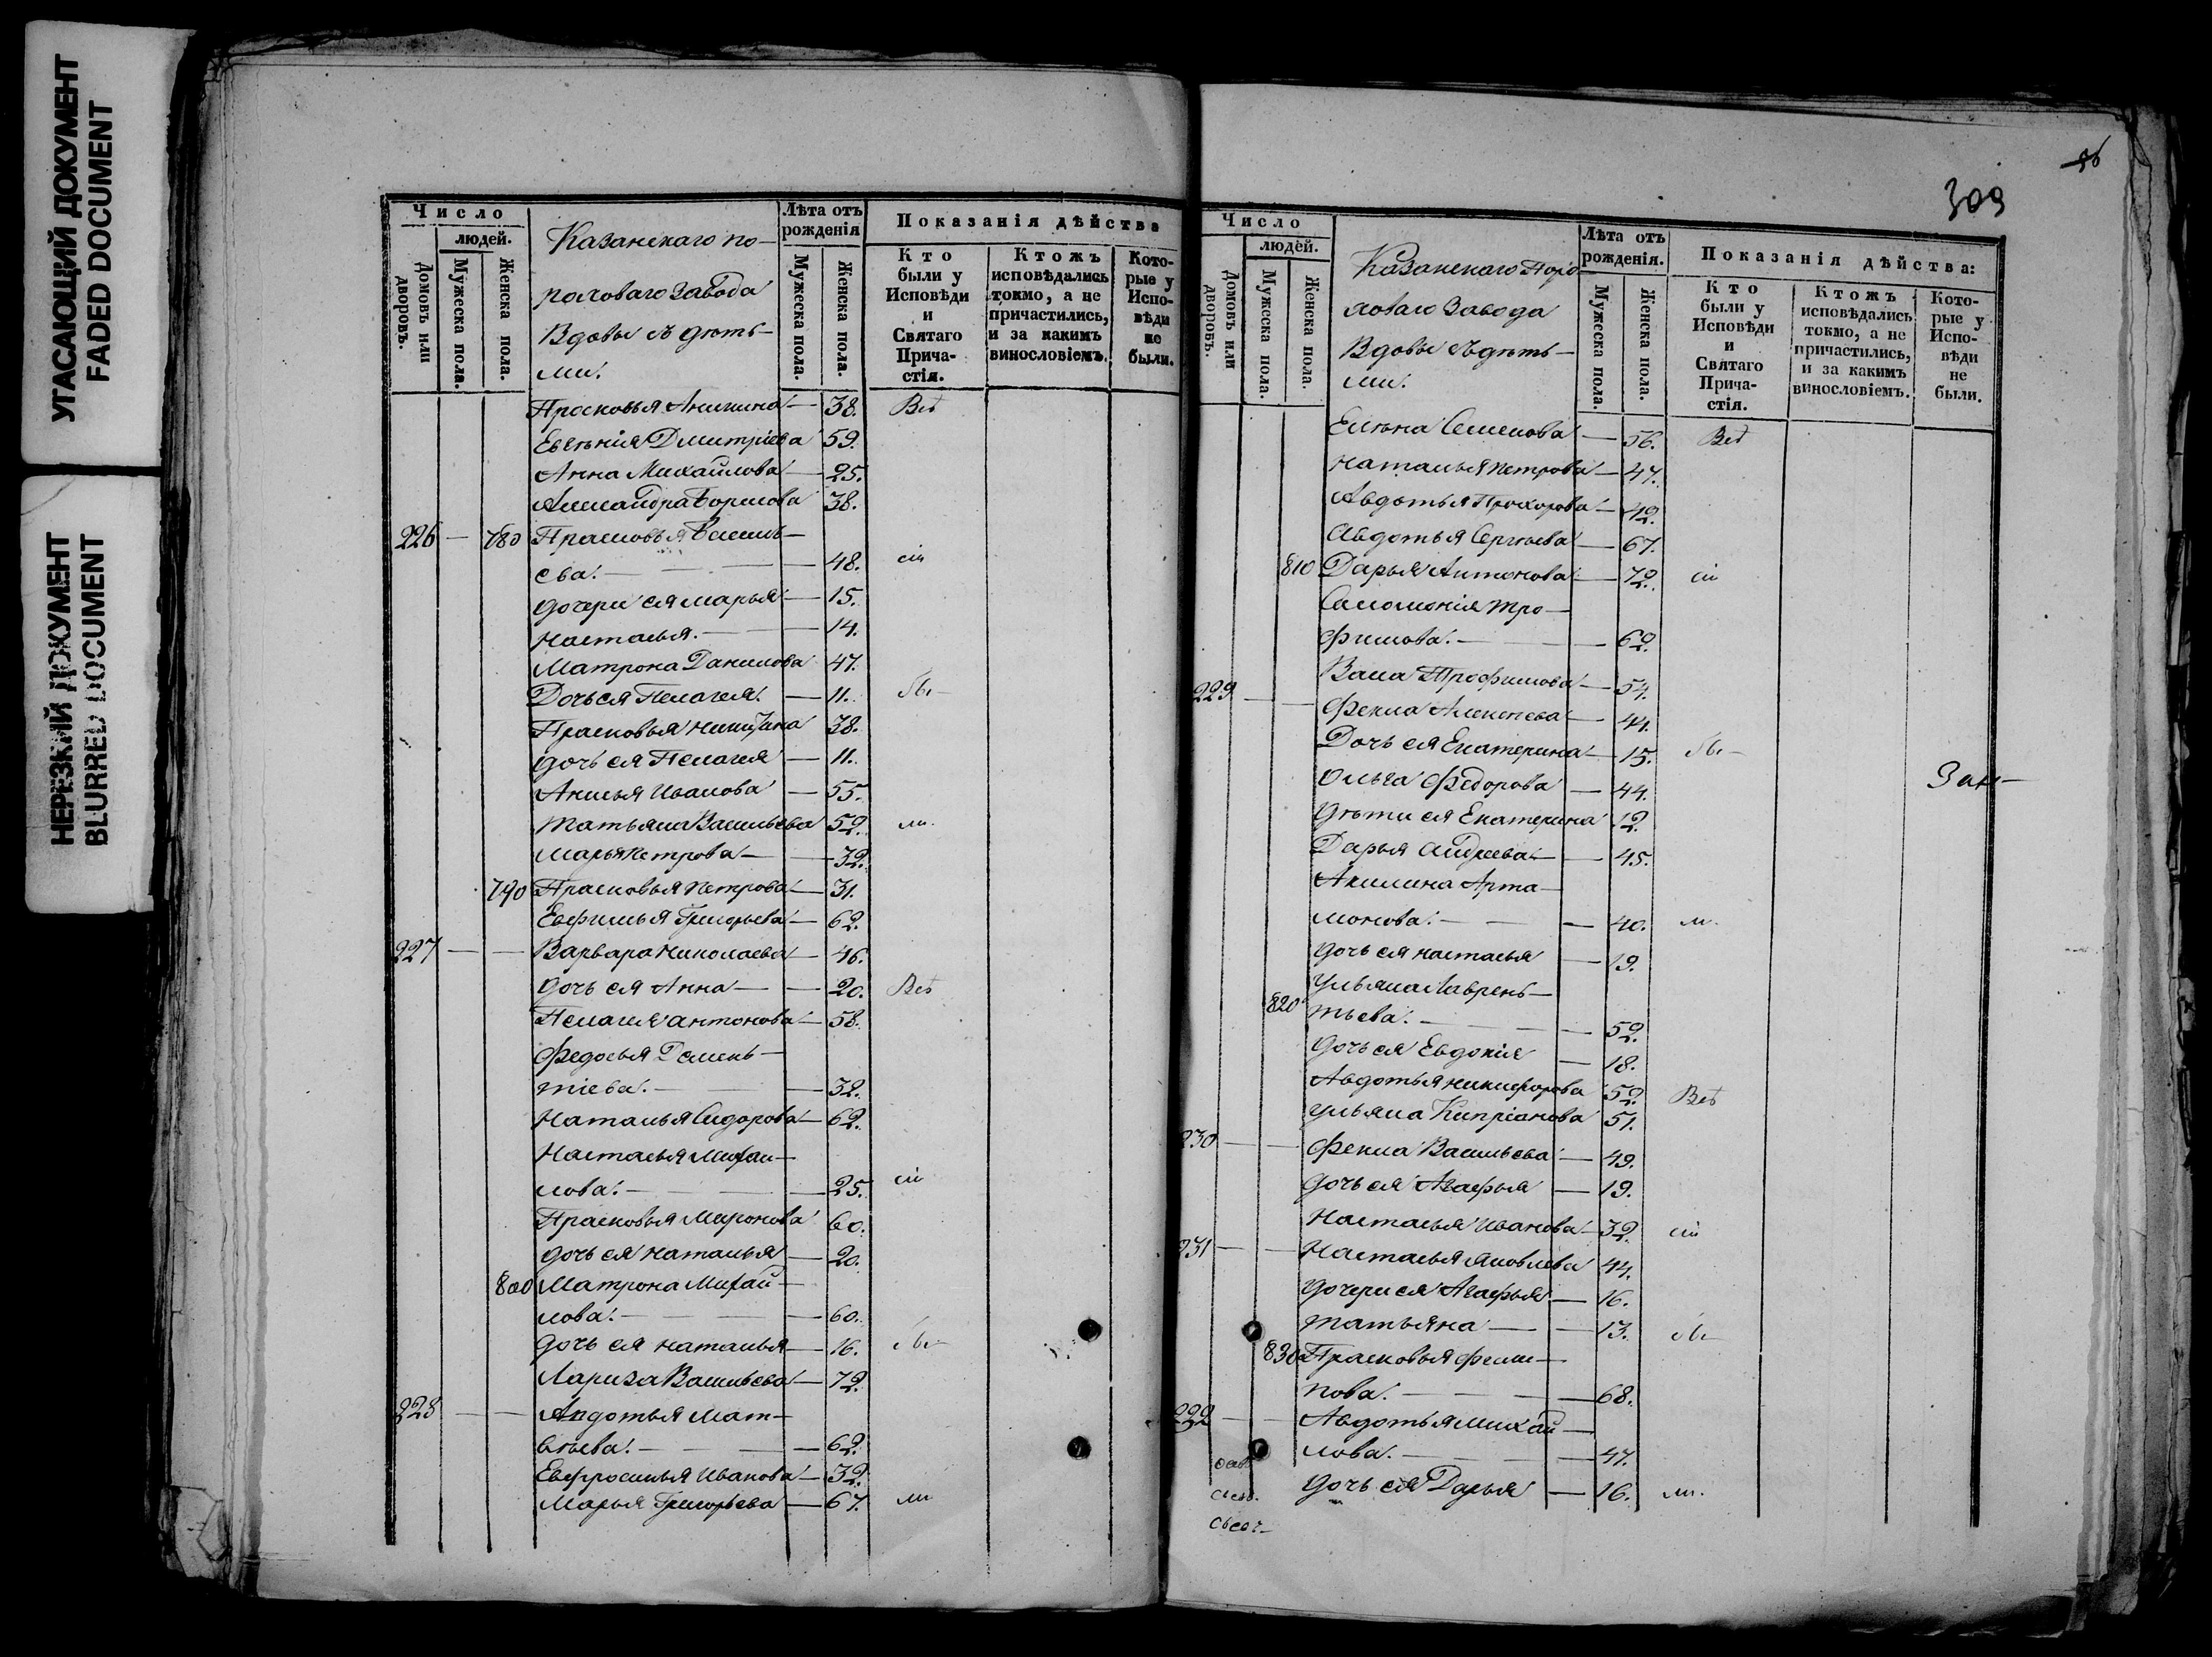 УГАСАЮЩИЙ ДОКУМЕНТ
FADED DOCUMENT
НЕРЕЗКИЙ ДОКУМЕНТ
BLURRED DOCUMENT
Число
людей.
Домовъ или дворовъ.
Мужеска пола.
Женска пола.
Казанскаго по-
роховаго завода
Вдовы съ дѣть-
ми.
Лѣта отъ рожденія
Мужеска пола.
Женска пола.
Показанія дѣйства
Кто были у Исповѣди и Святаго Прича-стія.
Ктожъ исповѣдались токмо, а не причастились, и за какимъ винословіемъ.
Кото-рые у Испо-вѣди не были.
Просковья Аникина — 38. Всѣ
Евгенія Дмитріева 59.
Анна Михайлова — 25.
Александра Борисова 38.
226 — 780 Прасковья Василь-
ева. — 48. сіи
дочери ея Марья — 15.
Настасья. — 14.
Матрона Данилова 47.
Дочь ея Пелагея. — 11. бы-
Прасковья Никитина 38.
дочь ея Пелагея — 11.
Анисья Иванова — 55.
Татьяна Васильева 52. ли.
Марья Петрова — 32.
790 Прасковья Петрова — 31.
Евфимья Григорьева — 62.
227 — — Варвара Николаева — 46.
дочь ея Анна — 20. Всѣ
Пелагея Антонова — 58.
Федосья Демень-
тіева. — 32.
Наталья Сидорова — 62.
Настасья Михаи-
лова. — 25. сіи
Прасковья Миронова 60.
дочь ея Наталья — 20.
800 Матрона Михай-
лова. — 60.
дочь ея Наталья — 16. бы-
Лариса Васильева — 72.
228 — — Авдотья Мат-
вѣева. — 62.
Евфросинья Иванова — 32.
Марья Григорьева — 67. ли
56
309
Число
людей.
Домовъ или дворовъ.
Мужеска пола.
Женска пола.
Казанскаго Поро
ховаго завода
Вдовы съ дѣть-
ми.
Лѣта отъ рожденія.
Мужеска пола.
Женска пола.
Показанія дѣйства:
Кто были у Исповѣди и Святаго Прича-стія.
Ктожъ исповѣдались токмо, а не причастились, и за какимъ винословіемъ.
Кото-рые у Испо-вѣди не были.
Елена Семенова — 56. Всѣ
Наталья Петрова — 47.
Авдотья Прохорова — 42.
Авдотья Сергѣева — 67.
810 Дарья Антонова — 72. сіи
Саломонія Тро-
фимова. — 62.
Васса Трофимова — 54.
229 — — Фекла Алексеева — 44.
Дочь ея Екатерина — 15. бы-
Ольга Федорова — 44.
дѣти ея Екатерина 12.
Дарья Андреева — 45.
Акилина Арта-
монова. — 40. ли.
дочь ея Настасья — 19.
Ульяна Лаврень-
820 тьева. — 52.
дочь ея Евдокія — 18.
Авдотья Никифорова 52. Всѣ
Ульяна Кипріанова 51.
230 — — Фекла Васильева — 49.
дочь ея Агафья — 19.
Настасья Иванова — 32. сіи
231 — — Настасья Яковлева 44.
дочери ея Агафья — 16.
Татьяна — 13. бы-
830 Прасковья Фили-
пова. — 68.
232 — — Авдотья Михай-
лова. — 47.
дочь ея Дарья — 16. ли.